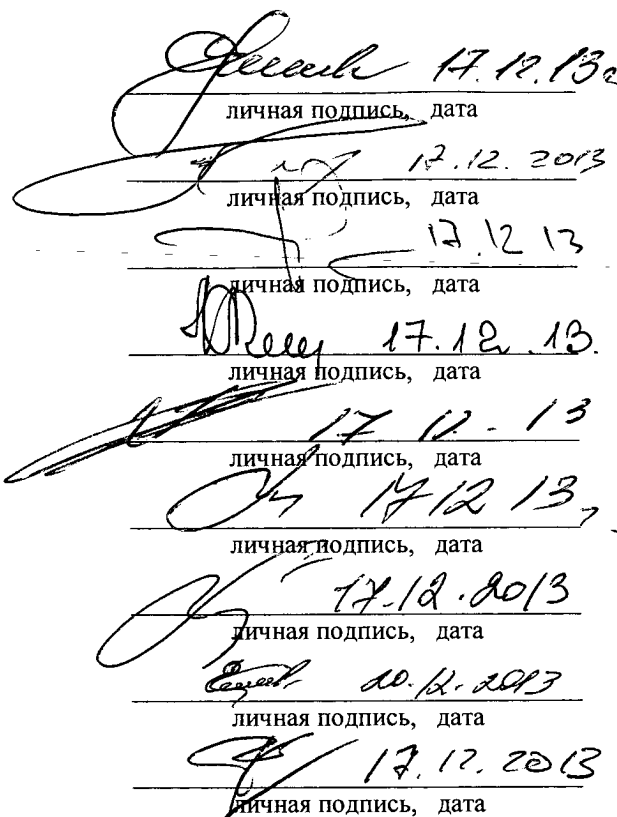 17.12.13г
личная подпись, дата
17.12.2013
личная подпись, дата
17.12 13
личная подпись, дата
17.12.13.
личная подпись, дата
17 12 - 13
личная подпись, дата
17 12 13
личная подпись, дата
17.12.2013
личная подпись, дата
20.12.2013
личная подпись, дата
17.12.2013
личная подпись, дата